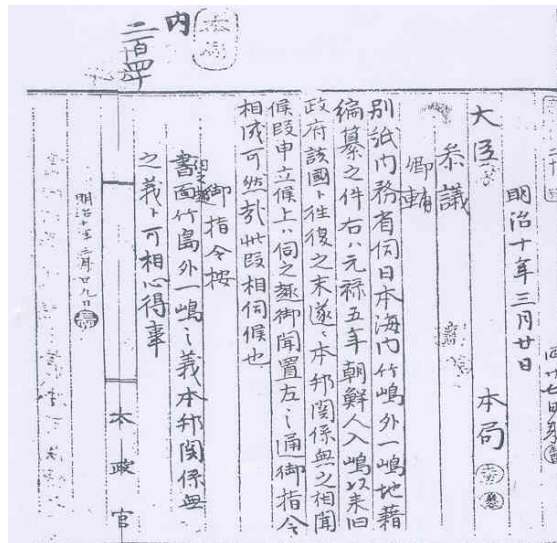 明治十年三月廿日
本局
大臣
参議
卿輔
別紙内務省伺日本海内竹嶋外一嶋地籍
編纂之件右ハ元禄五年朝鮮人入嶋以来旧
政府該国ト往復之末遂ニ本邦関係無之相聞
候段申立候上ハ伺之趣御聞置左之通御指令
相成可然哉此段相伺候也
御指令按
伺之趣
書面竹島外一嶋之義本邦関係無
之義ト可相心得事
本政官
明治十年三月廿九日
内
二百四十